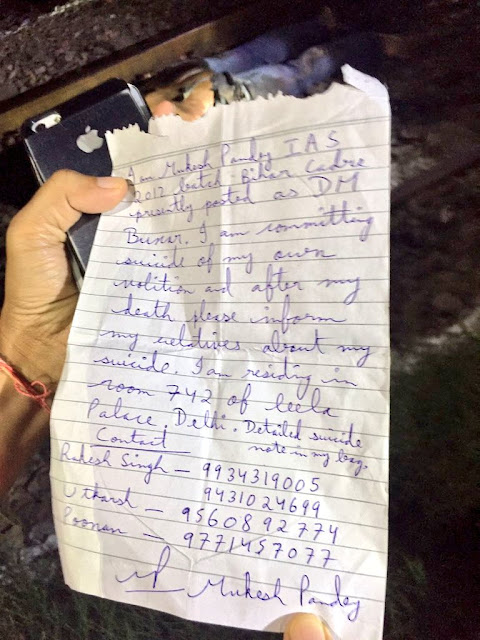 I am Mukesh Pandey IAS
2012 batch Bihar Cadre
presently posted as DM
Buxar. I am committing
suicide of my own
volition ad after my
death please inform
my relatives about my
suicide. I am residing in
room 742 of leela
Palace, Delhi. Detailed suicide
note in my bag.
Contact
Rakesh Singh – 9934319005
9431024699
Utkarsh – 9560892774
Poonam – 9771457077
MP Mukesh Pandey